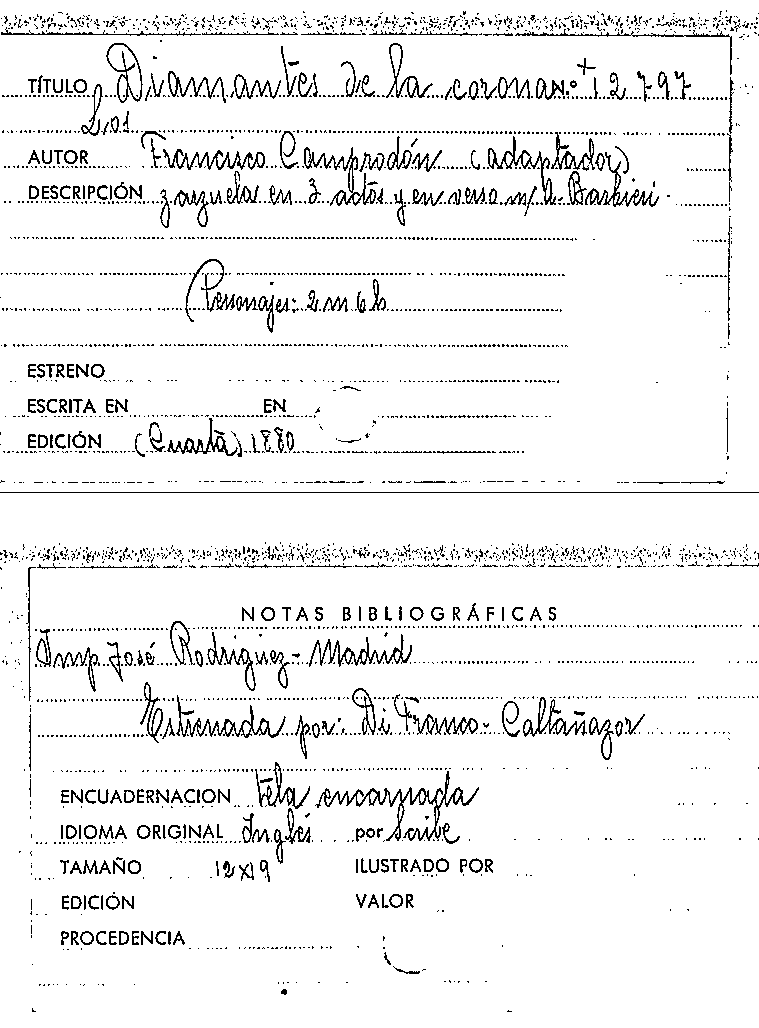 TÍTULO Diamantes de la corona N.º + 12797
Los
AUTOR Francisco Camprodón (adaptador)
DESCRIPCIÓN zarzuela en 3 actos y en verso m/ A. Barbieri.
(Personajes: 2 m 6 h
ESTRENO
ESCRITA EN EN
EDICIÓN (Cuarta) 1880
NOTAS BIBLIOGRÁFICAS
Imp José Rodriguez - Madrid
Estrenada por: Di Franco - Caltañazor
ENCUADERNACION tela encarnada
IDIOMA ORIGINAL Inglés por Scribe
TAMAÑO 12x19 ILUSTRADO POR
EDICIÓN VALOR
PROCEDENCIA